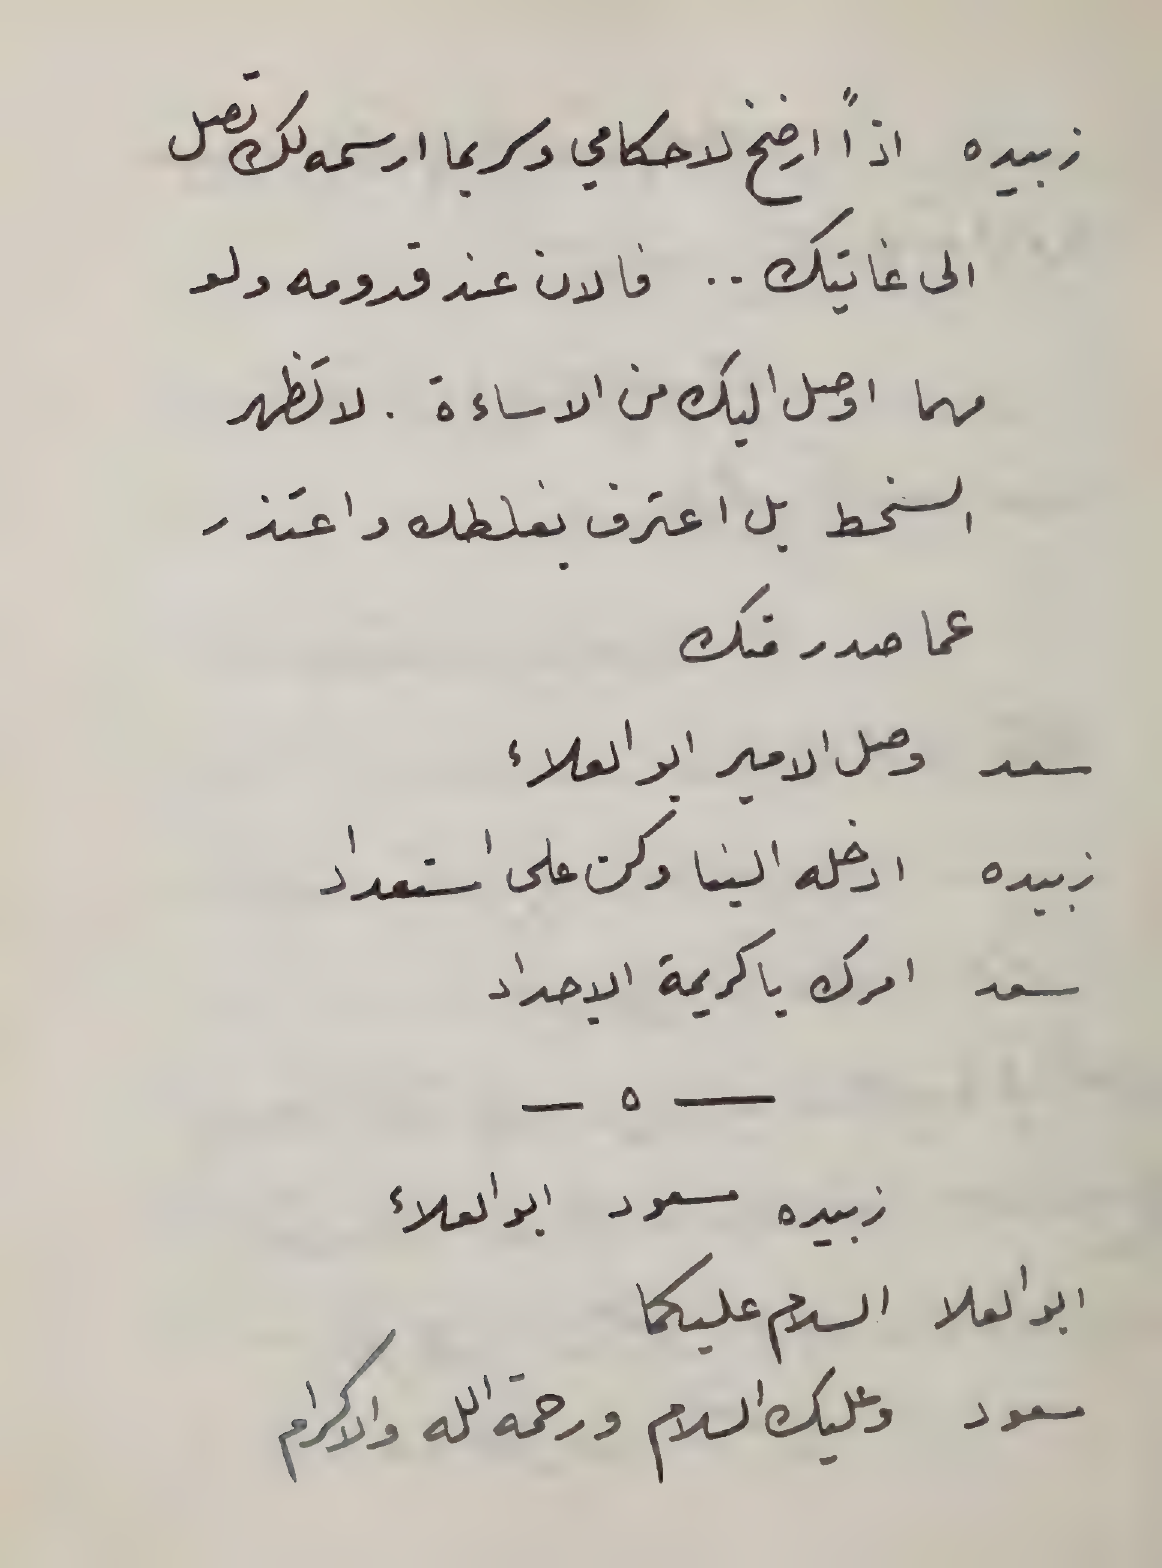 زبيده اذاً ارضخ لاحكامي وسر بما ارسمه لك تصل
الى غايتك .. فالان عند قدومه ولو
مهما اوصل اليك من الاساءة . لا تظهر
السخط بل اعترف بغلطك واعتذر
عما صدر منك
سعد وصل الامير ابو العلاء
زبيده ادخله الينا وكن على استعداد
سعد امرك يا كريمة الاجداد
— ٥ —
زبيده مسعود ابو العلاء
ابو العلا السلام عليكما
مسعود وعليك السلام ورحمة الله والاكرام